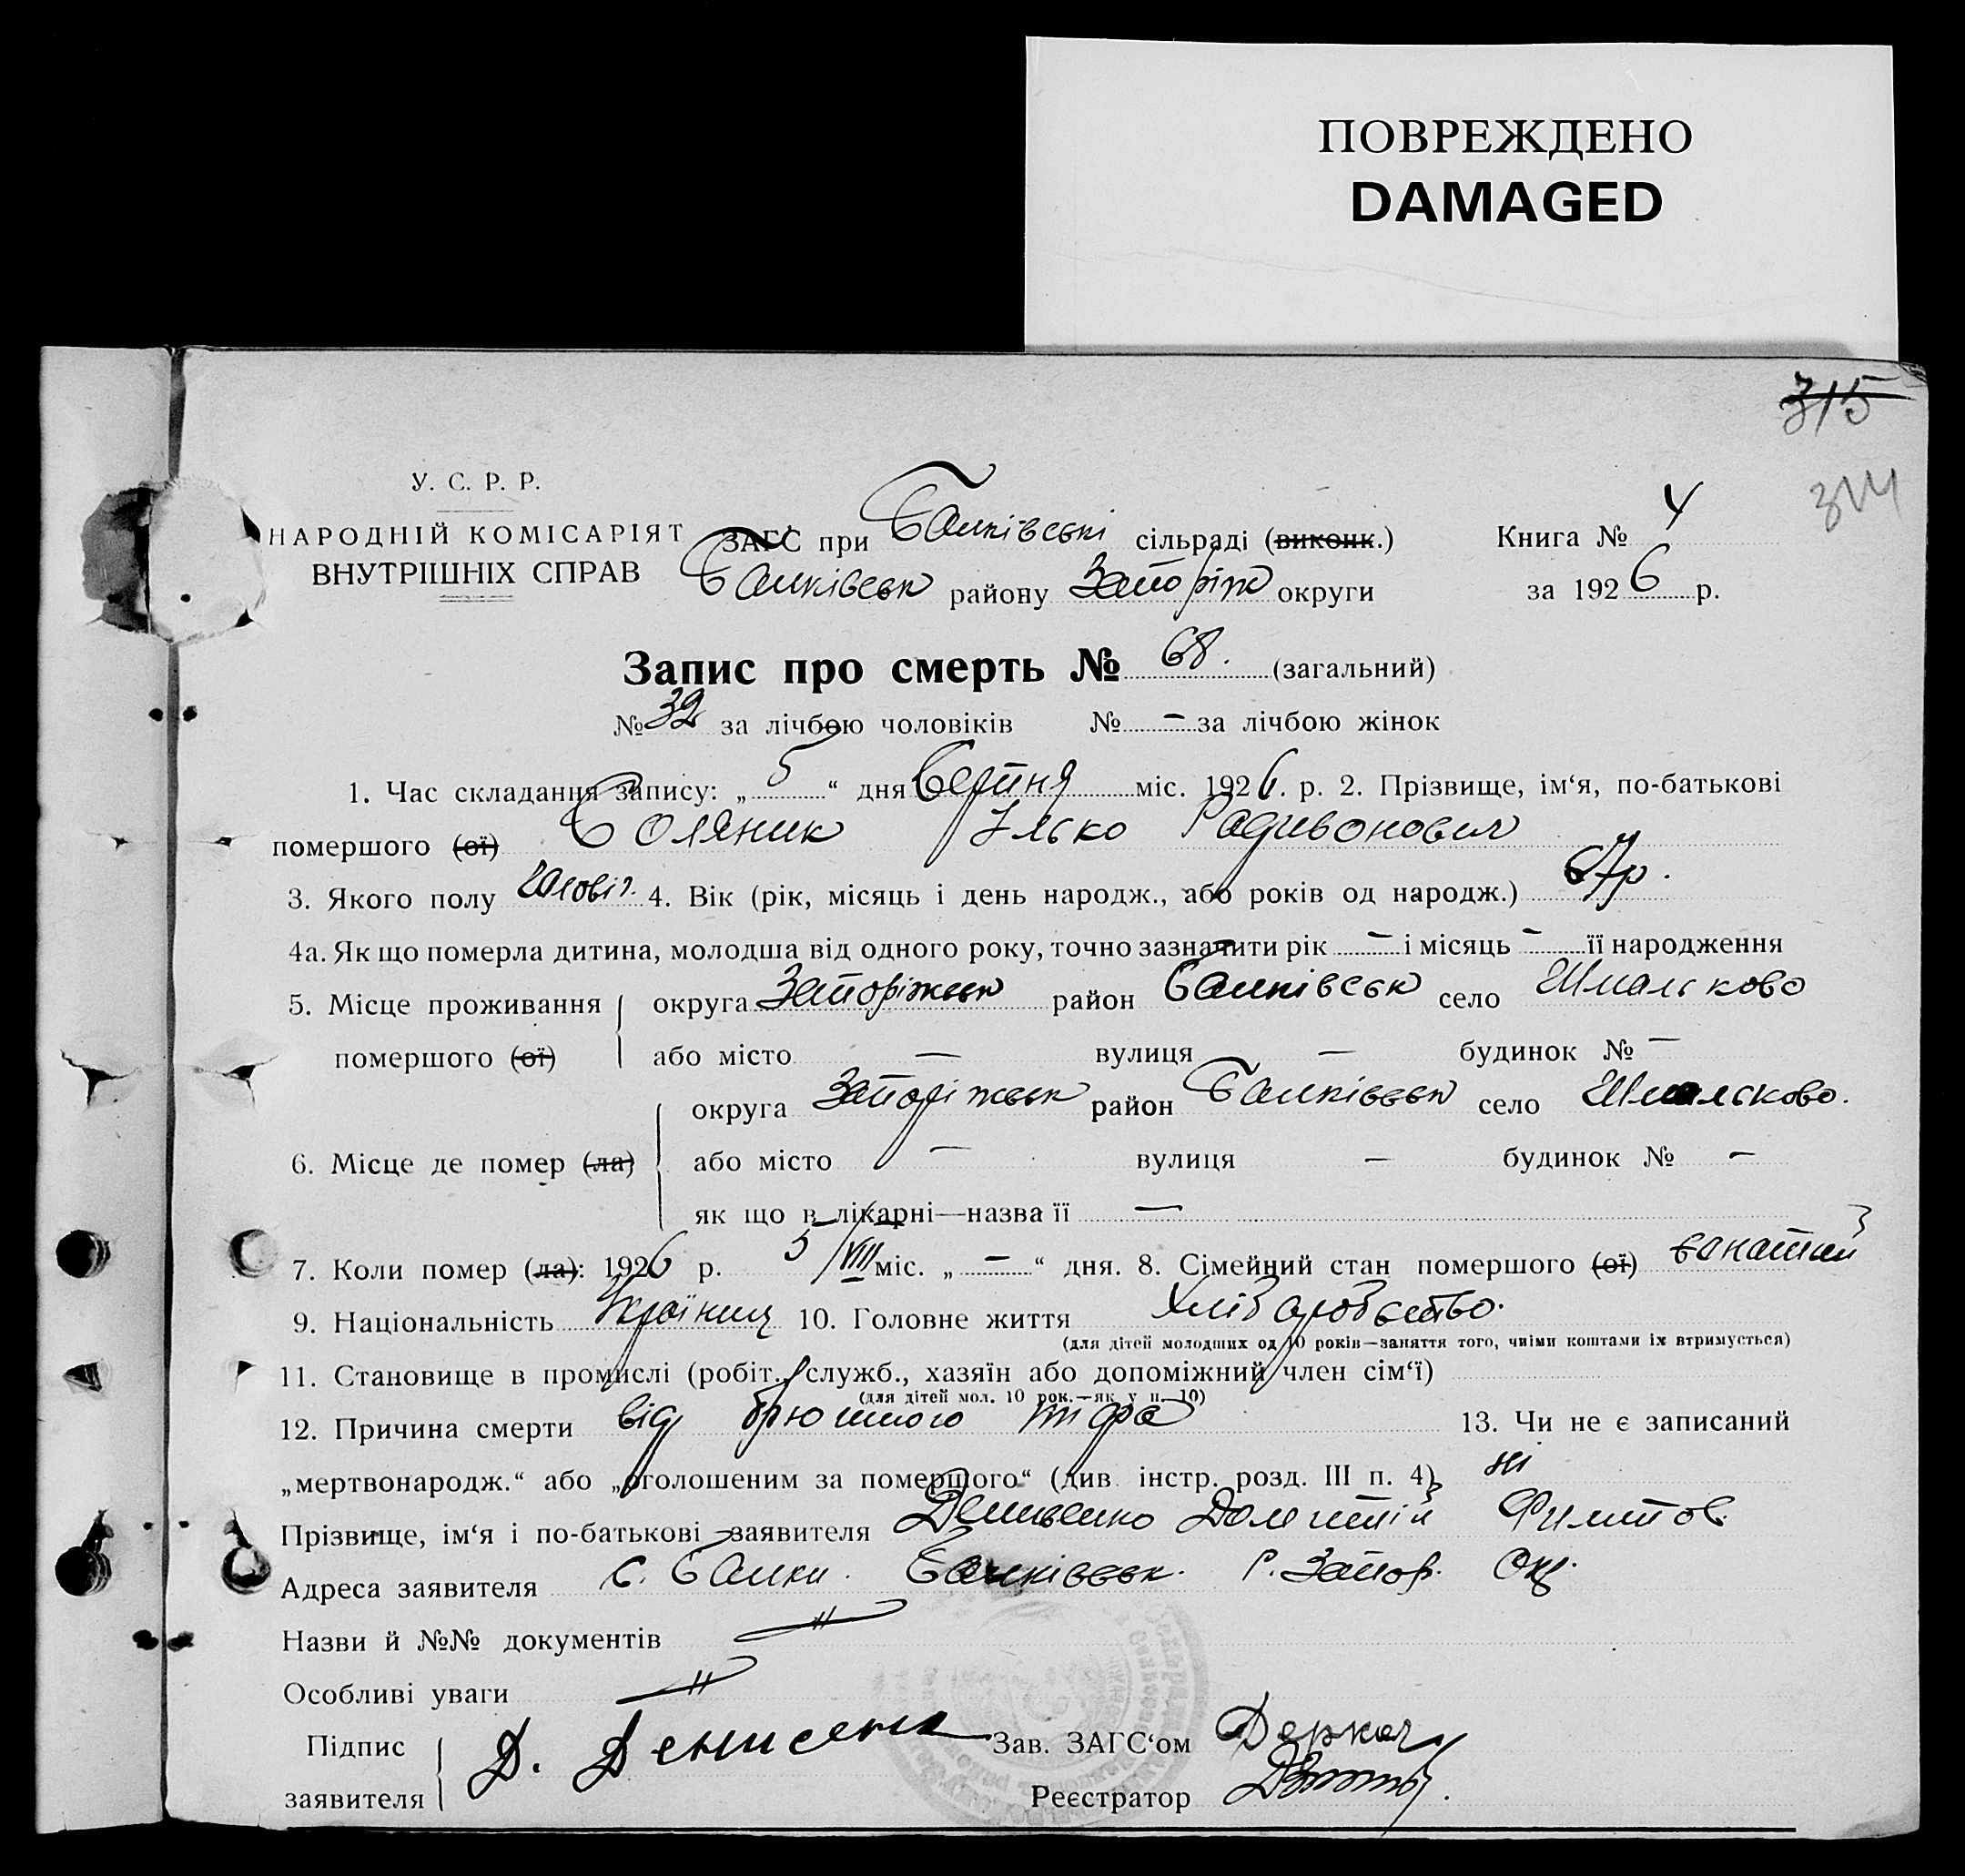 ПОВРЕЖДЕНО
DAMAGED
315
314
У. С. Р. Р.
НАРОДНІЙ КОМІСАРІЯТ
ВНУТРІШНІХ СПРАВ
ЗАГС при Балківські сільраді (виконк.)
Балківськ району Запоріж округи
Книга № 4
за 1926 р.
Запис про смерть № 68. (загальний)
№ 32 за лічбою чоловіків № – за лічбою жінок
1. Час складання запису: „5“ дня серпня міс. 1926. р. 2. Прізвище, ім‘я, по-батькові
помершого (ої) Ілько Родивонович
3. Якого полу чоловіч. 4. Вік (рік, місяць і день народж., або років од народж.)
4а. Як що померла дитина, молодша від одного року, точно зазначити рік – і місяць – її народження
5. Місце проживання округа Запоріжськ район Балківськ село
помершого (ої) або місто — вулиця — будинок № —
округа Запоріжськ район Балківськ село
6. Місце де помер (ла) або місто — вулиця — будинок № —
як що в лікарні—назва її —
7. Коли помер (ла): 1926 р. 5/VIII міс. „–“ дня. 8. Сімейний стан помершого (ої) жонатий
9. Національність Українец 10. Головне життя Хліборобство.
(для дітей молодших од 10 років—заняття того, чиїми коштами їх втримується)
11. Становище в промислі (робіт., служб., хазяїн або допоміжний член сім‘ї)
(для дітей мол. 10 рок.—як у п. 10)
12. Причина смерти від брюшного тифа 13. Чи не є записаний
„мертвонародж.“ або „оголошеним за помершого“ (див. інстр. розд. III п. 4) ні
Прізвище, ім‘я і по-батькові заявителя
Адреса заявителя с. Балки. Балківськ. Р. Запор. Окр.
Назви й №№ документів //
Особливі уваги //
Підпис
заявителя Д. Денисенко
Зав. ЗАГС‘ом Деркач
Реєстратор